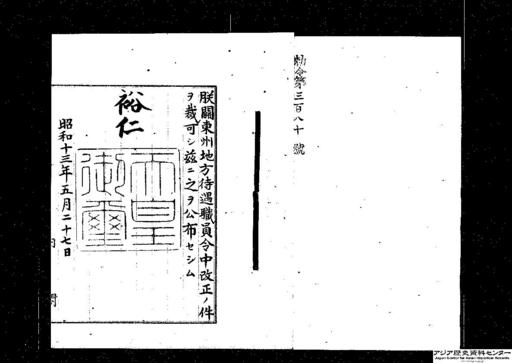 勅令第三百八十號
朕關東州地方待遇職員令中改正ノ件
ヲ裁可シ茲ニ之ヲ公布セシム
裕仁
天皇御璽
昭和十三年五月二十七日
内閣
アジア歴史資料センター
Japan Center for Asian Historical Records